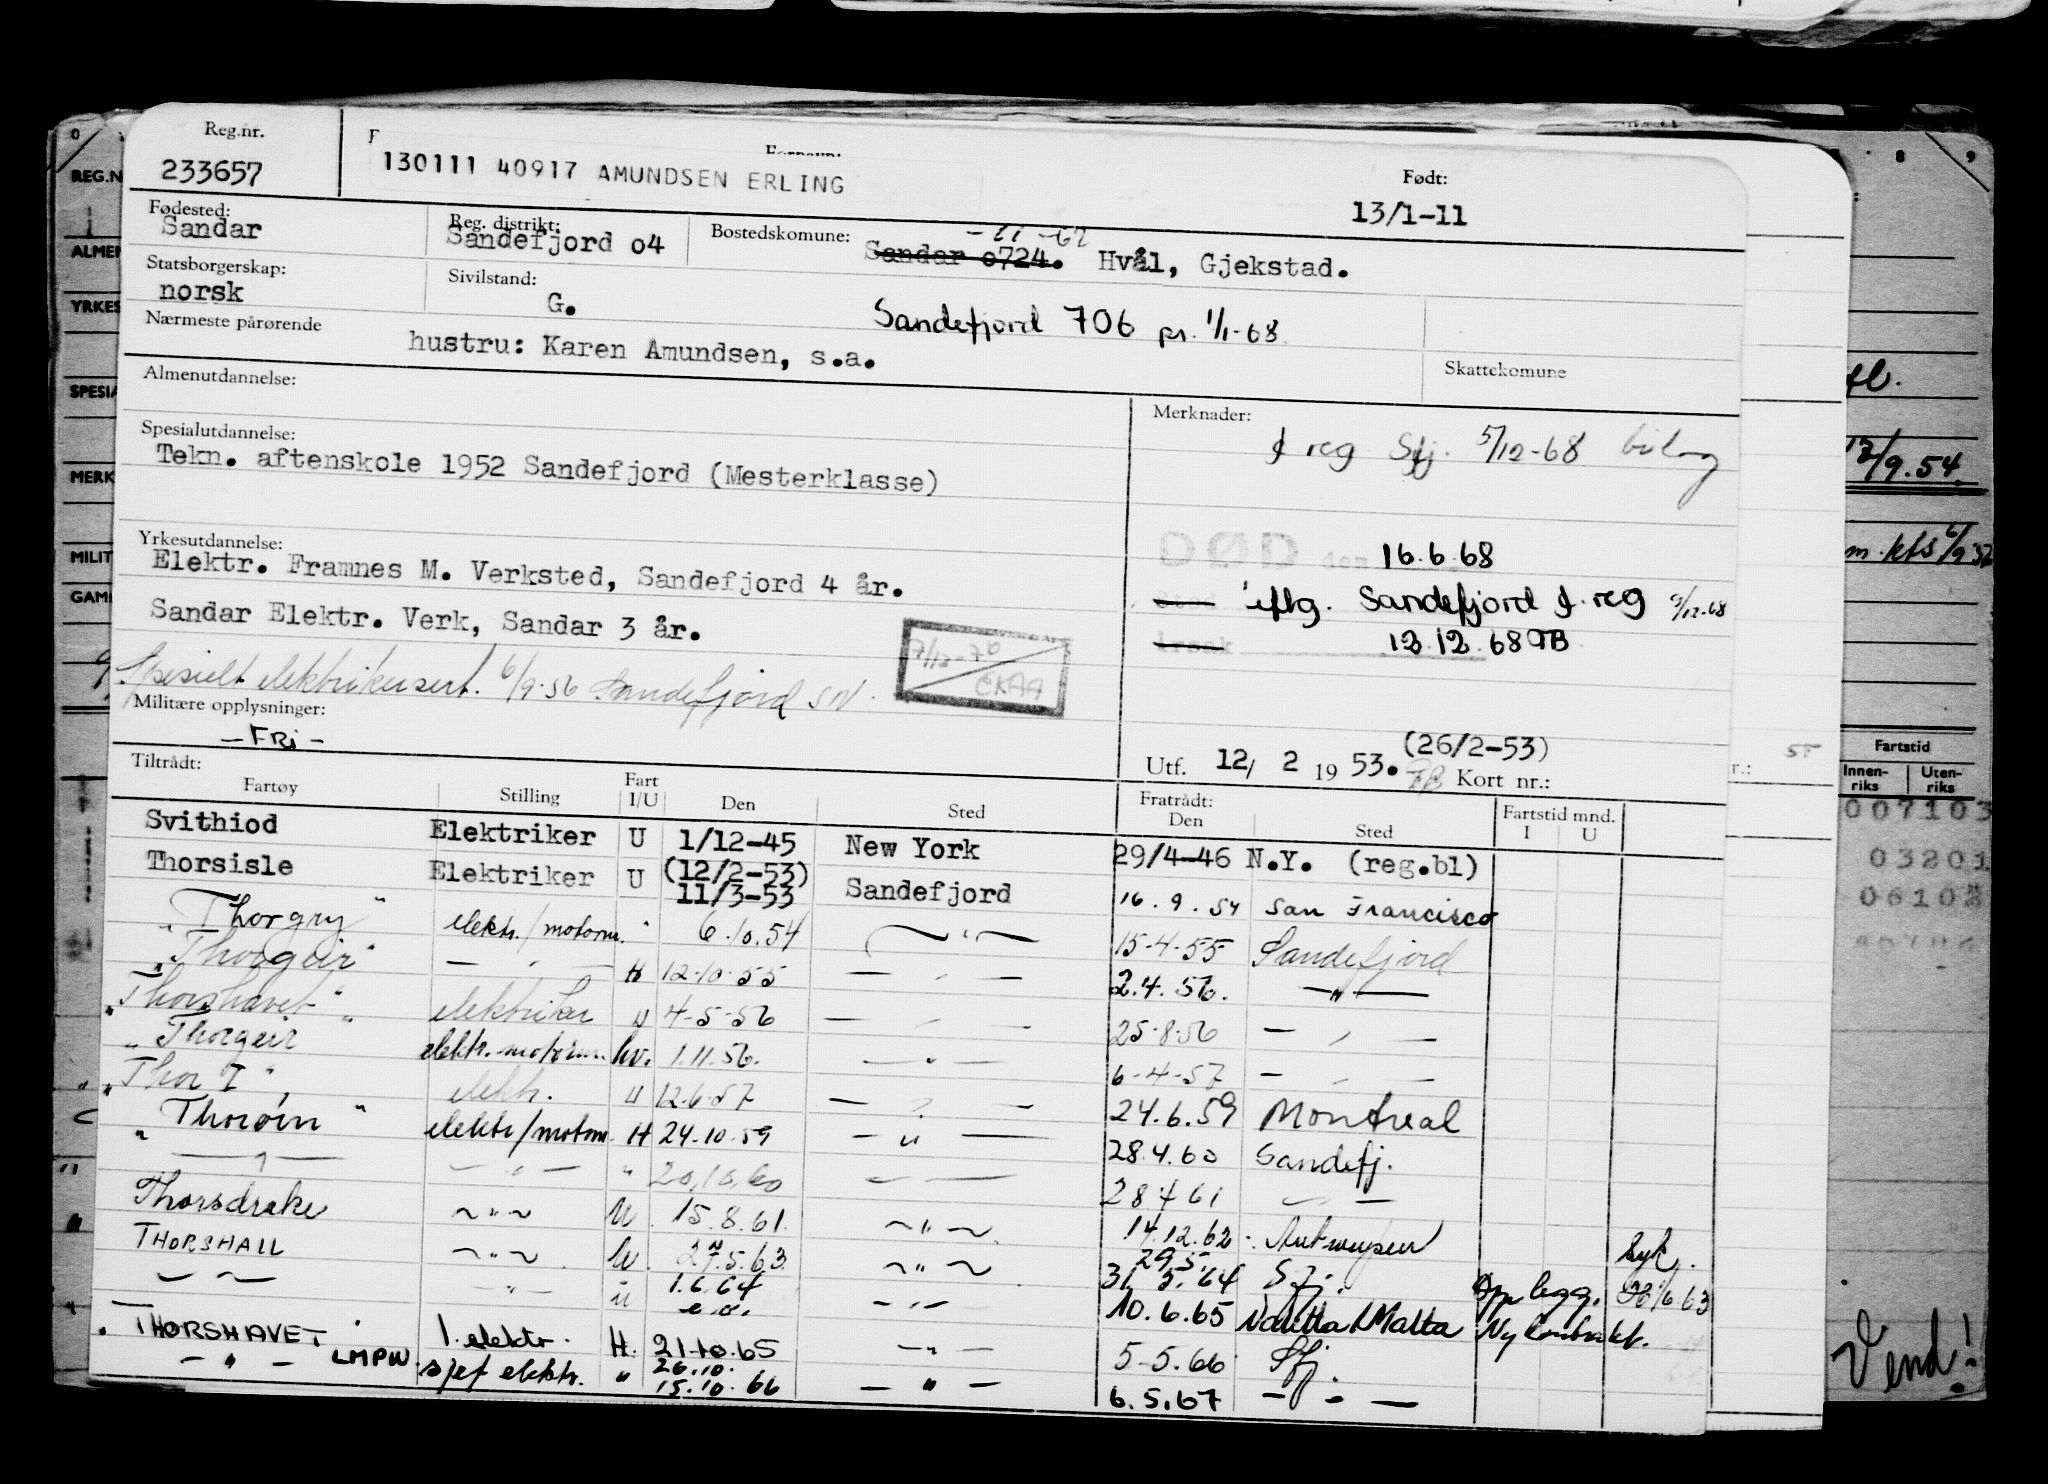 Reg.nr.
233657
130111 40917 AMUNDSEN ERLING
Født:
13/1-11
Fødested:
Sandar
Reg. distrikt:
Sandefjord o4
Bostedskomune:
-11-62
Sandar o724. Hvål, Gjekstad.
Statsborgerskap:
norsk
Sivilstand:
G.
Sandefjord 706 pr. 1/1-68
Nærmeste pårørende
hustru: Karen Amundsen, s.a.
Skattekomune
Almenutdannelse:
Merknader:
reg Sfj. 5/12-68
Spesialutdannelse:
Tekn. aftenskole 1952 Sandefjord (Mesterklasse)
Yrkesutdannelse:
Elektr. Framnes M. Verksted, Sandefjord 4 år.
Sandar Elektr. Verk, Sandar 3 år.
DØD den 16.6.68
iflg. Sandefjord s.reg 9/12.68
12.12.68
7/12-76
Spesielt elektrikersert. 6/9-56 Sandefjord
Militære opplysninger:
- FRi -
(26/2-53)
Utf. 12/ 2 19 53. Kort nr.:
Tiltrådt:
Fartøy Stilling Fart I/U Den Sted Fratrådt: Den Sted Fartstid mnd. I U
Svithiod Elektriker U 1/12-45 New York 29/4-46 N.Y. (reg.bl)
Thorsisle Elektriker U (12/2-53) 11/3-53 Sandefjord 16.9.54 San Francisco
" Thorgry " elektr./motorm. " 6.10.54 — " — 15-4-55 Sandefjord
" Thorgeir " — " — H 12-10-55 — " — 2.4.56. — " —
" Thorshavet " elektriker U 4-5-56 — " — 25-8-56 — " —
" Thorgeir " elektr. motorm. hv. 1.11.56. — " — 6-4-57 — " —
" Thor I " elektr. U 12-6-57 — " — 24.6.59 Montreal
" Thorøin " elektr/motorm. H 24.10.59 — " — 28.4.60 Sandefj.
— " — — " — " 20.10.60 — " — 28 4 61 — " —
Thorsdrake — " — U 15.8.61. — " — 14.12.62 Antwerpen Syk.
THORSHALL — " — U. 27.5.63 — " — 29.5. 31. 3.64 Sfj. Opplegg. 1/6 63
— " — — " — U 1.6.64 — " — 10.6.65 Valetta/Malta Ny kontrakt.
THORSHAVET 1. elektr. H. 21-10.65 — " — 5-5.66 Sfj.
— " — LMPW sjef elektr. " 26.10. 15.10.66 — " — 6.5.67 — " —
REG.N
ALMEN
YRKES
SPESIA
MERK
MILIT
8 9
12/9.54.
Fartstid
Innen-riks Uten-riks
007103
03201
Vend!